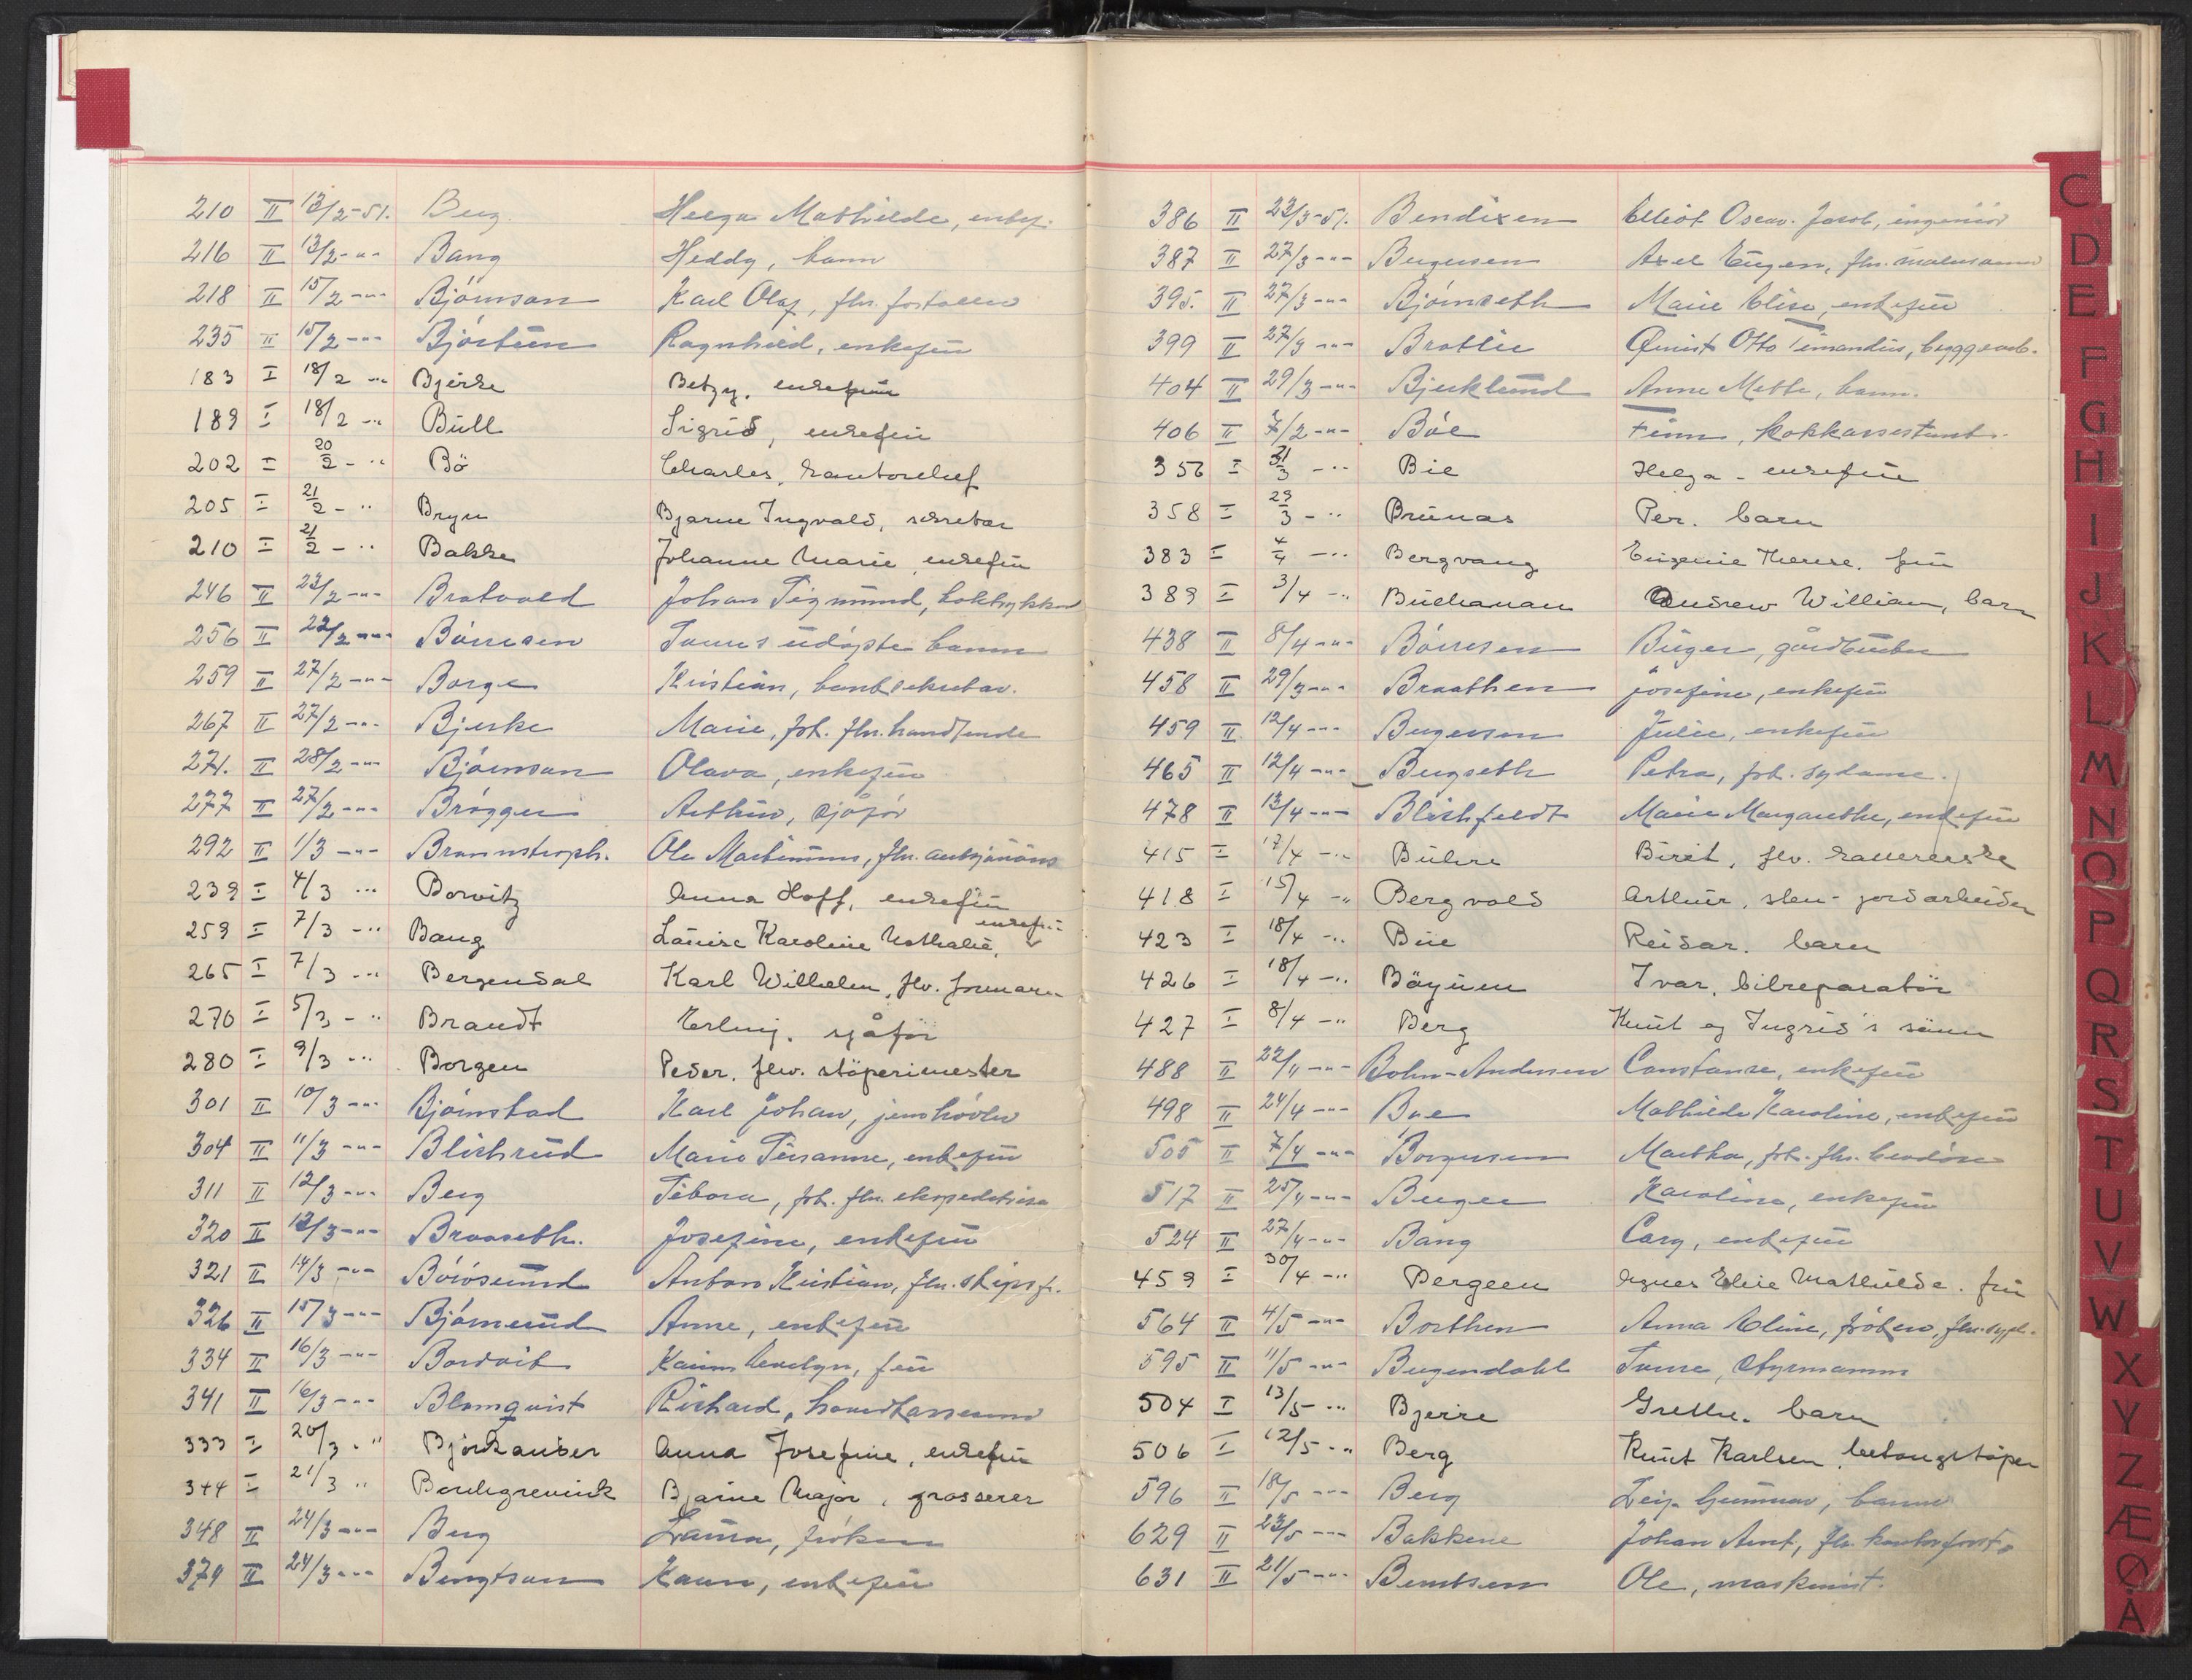 210 II 13/2-51. Berg. Helga Mathilde, enkef.
216 II 13/2-"- Bang Heddy, barn
218 II 15/2-"- Bjørnson Karl Olaf, fhv.
235 II 15/2-"- Ragnhild, enkefru
183 I 18/2-" Bjerke Betzy, enkefru
189 I 18/2-" Bull Sigrid, enkefru
202 I 20/2-" Bö Charles, kontorchef
205 I 21/2-" Bryn Bjarne Ingvald, sekretær
210 I 21/2-" Bakke Johanne Marie, enkefru
246 II 23/2-"- Bratvold Johan Sigmund, boktrykker
256 II 22/2-"- Børresen udøpte barn
259 II 27/2-"- Borge Kristian, banksekretær.
267 II 27/2-"- Bjerke Marie, frk. fhv. handlende
271. II 28/2-"- Bjørnson Olava, enkefru
277 II 27/2-"- Brøgger Arthur, sjåfør
292 II 1/3-"- Ole Martinius, fhv.
239 I 4/3-" Borvitz Anna Hoff, enkefru
259 I 7/3-" Bang Louise Karoline Nathalie, enkefru
265 I 7/3-" Bergendal Karl Wilhelm, fhv. formann
270 I 5/3-" Brandt Erling, sjåför
280 I 9/3-" Borgen Peder, fhv. stöperimester
301 II 10/3-"- Bjørnstad Karl Johan, jernhøvler
304 II 11/3-"- Blichrud Marie Susanne, enkefru
311 II 12/3-"- Berg frk. fhv. ekspeditrise
320 II 12/3-"- Braaseth. Josefine, enkefru
321 II 14/3-"- Børøsund Anton Kristian, fhv. skipsf.
326 II 15/3-"- Bjørnerud Anne, enkefru
334 II 16/3-"- Bordvik fru
341 II 16/3-"- Blomquist Richard,
333 I 20/3-" Anna Josefine, enkefru
344 I 21/3 " Borchgrevink Bjarne Major, grosserer
348 II 24/3-"- Berg Laura, frøken
379 II 24/3-"- Bengtson Karen, enkefru
386 II 23/3-51. Bendixen Elliot Oscar Jacob, ingeniør
387 II 27/3-"- Bergersen Axel Eugen, fhv.
395. II 27/3-"- Bjørnseth Marie Elise, enkefru
399 II 27/3-"- Brotlie Qvist Otto
404 II 29/3-"- Bjerklund Anne Mette, barn.
406 II 7/2-"- Bøe Finn, kokkassistent.
356 I 31/3-" Bie Helga - enkefru
358 I 29/3-" Brunas Per. barn
383 I 4/4-" Bergvang Eugenie Therese. fru
389 I 3/4-" Buchanan Andrew William, barn
438 II 8/4-"- Børresen Birger, gårdbruker
458 II 29/3-"- Braathen Josefine, enkefru
459 II 12/4-"- Bergersen Julie, enkefru
465 II 12/4-"- Bergseth Petra, frk. sydame.
478 II 13/4-"- Blichfeldt Marie Margarethe, enkefru
415 I 17/4-" Birit, fhv.
418 I 15/4-" Bergvold Arthur, sten- jordarbeider
423 I 18/4-" Bue Reidar. barn
426 I 18/4-" Ivar, bilreparatör
427 I 8/4-" Berg Knut og Ingrid's sönn
488 II 22/4-"- Bohn-Andersen Constance, enkefru
498 II 24/4-"- Bye Mathilde Karoline, enkefru
505 II 7/4-"- Borgersen Martha, frk. fhv.
517 II 25/4-"- Berger Karoline, enkefru
524 II 27/4-"- Bang Cary, enkefru
459 I 30/4-" Bergeen Agnes Elvie Mathilde. fru
564 II 4/5-"- Borthen Anna Eline, frøken, fhv. sypl.
595 II 11/5-"- Bergendahl styrmann
504 I 13/5-" Bjerre Grethe. barn
506 I 12/5-" Berg Knut Karlsen, betongstöper
596 II 18/5-"- Berg Leif Gunnar, barn
629 II 23/5-"- Bakkene Johan Arnt, fhv.
631 II 21/5-"- Berntsen Ole, maskinist.
C
D
E
F
G
H
I
J
K
L
M
N
O
P
Q
R
S
T
U
V
W
X
Y
Z
Æ
Ø
Å